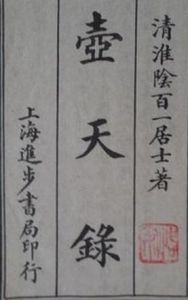 清淮陰百一居士著
壺天錄
上海進步書局印行